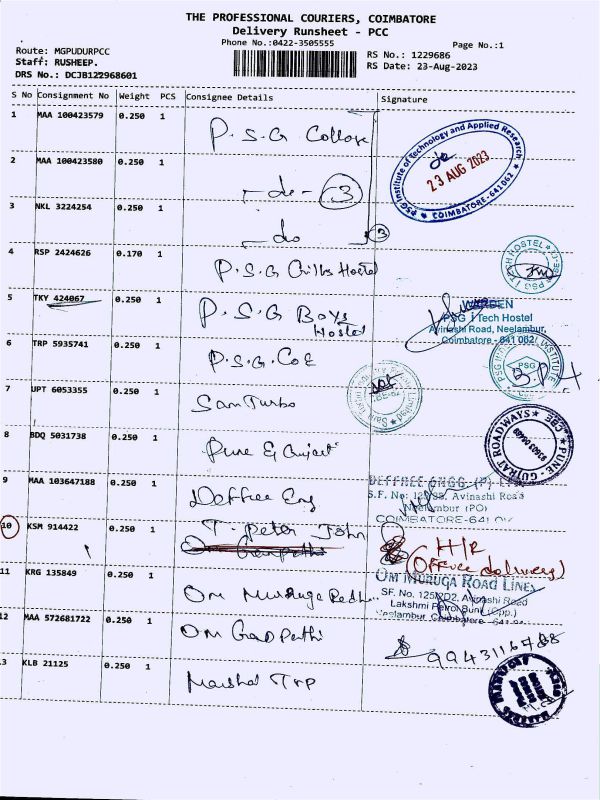 THE PROFESSIONAL COURIERS, COIMBATORE
Delivery Runsheet - PCC
Phone No.:0422-3505555
Page No.:1
Route: MGPUDURPCC
RS No.: 1229686
Staff: RUSHEEP.
RS Date: 23-Aug-2023
DRS No.: DCJB122968601
S No Consignment No Weight PCS Consignee Details Signature
1 MAA 100423579 0.250 1 P.S.G College
PSG Institute of Technology and Applied Research
23 AUG 2023
COIMBATORE-641 062
2 MAA 100423580 0.250 1 -do- 3
3 NKL 3224254 0.250 1 -do 3
4 RSP 2424626 0.170 1 P.S.G Girls Hostel
TECH HOSTEL
5 TKY 424067 0.250 1 P.S.G Boys Hostel
WARDEN
PSG iTech Hostel
Avinashi Road, Neelambur,
Coimbatore - 641 062
6 TRP 5935741 0.250 1 P.S.G. CoE
PSG
7 UPT 6053355 0.250 1 Sam Turbo
8 BDQ 5031738 0.250 1 Pune & Gujarat
PUNE - GUJRAT ROADWAYS
CBE.
9 MAA 103647188 0.250 1 Deffree Eng
DEFFREE ENGG (P)
S.F. No: Avinashi Road
Neelambur (PO)
COIMBATORE-641
10 KSM 914422 0.250 1 T. Peter John
H/R
(Office delivery)
11 KRG 135849 0.250 1 Om Muruga
OM MURUGA ROAD LINES
SF. No. 125/2D2, Avinashi Road
Lakshmi Petrol Bunk (Opp.)
Neelambur, Coimbatore - 641
12 MAA 572681722 0.250 1 Om Ganpathi
13 KLB 21125 0.250 1 Marshal Trp